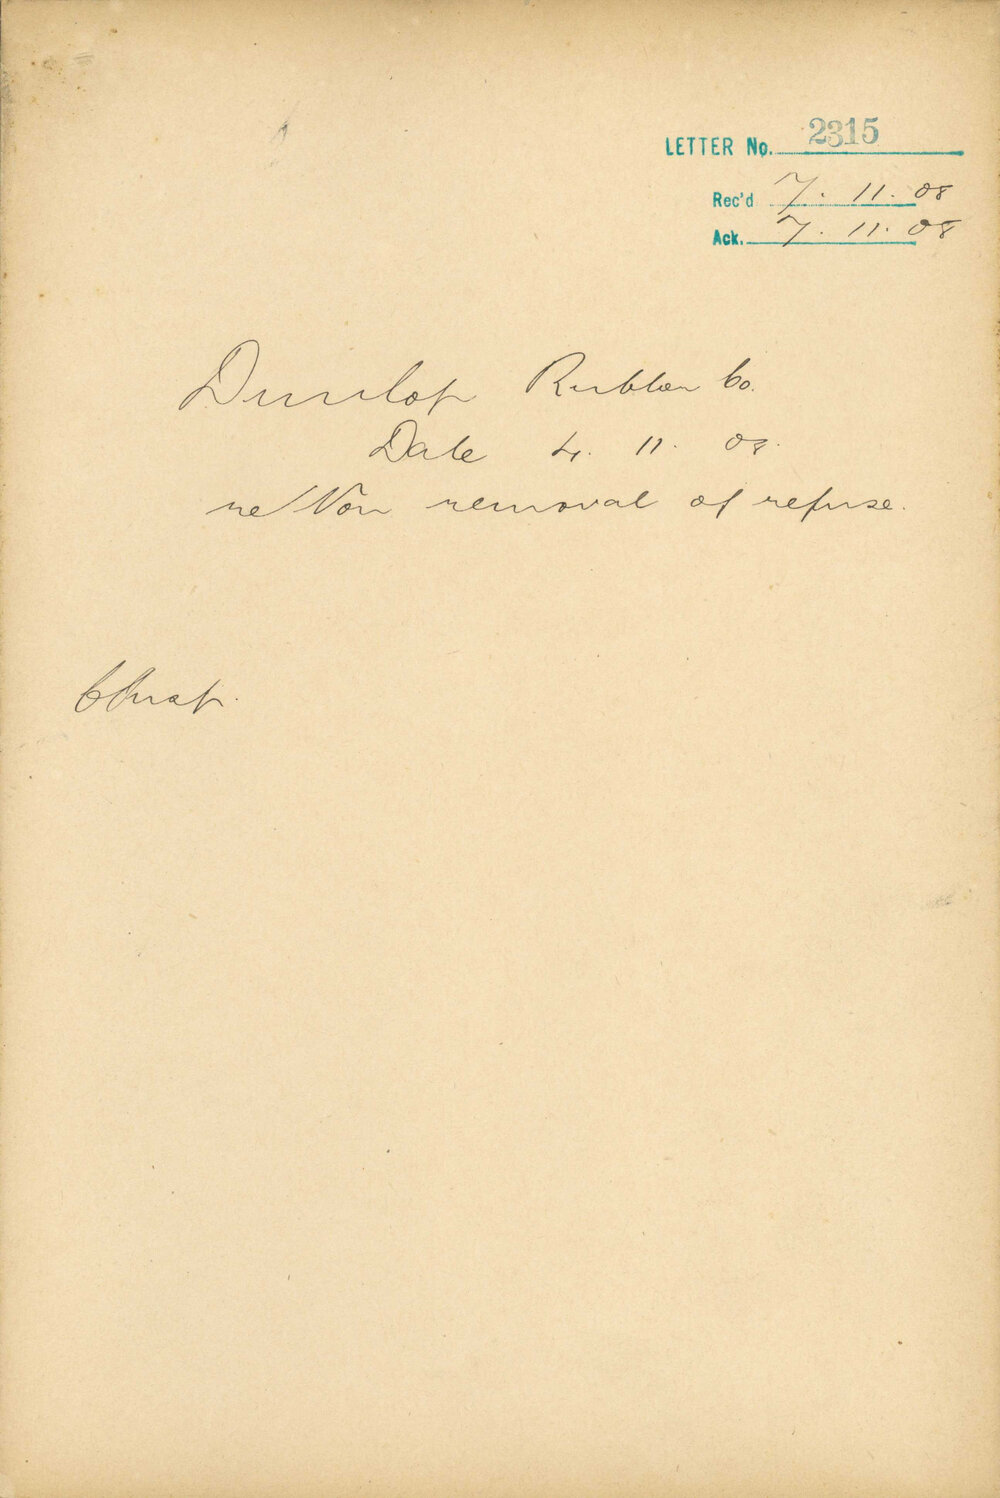 LETTER No. 2315
Rec'd 7. 11. 08
Ack. 7. 11. 08
Dunlop Rubber Co.
Date 4. 11. 08.
re Non removal of refuse.